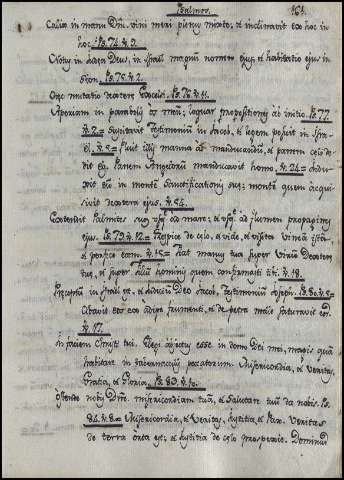 Psalmos. 151.
Calix in manu Dñi. vini meri plenus mixto; et inclinavit ex hoc in
hoc. Ps. 74. v. 9.
Notus in Judea Deus, in Israel magnum nomen ejus, et habitatio ejus in
Sion. Ps. 75. v. 2.
Hæc mutatio dexteræ Excelsi. Ps. 76. v. 11.
Aperiam in parabolis os meum; loquar propositiones ab initio. Ps. 77.
v. 2. = Suscitavit Testimonium in Jacob, et legem posuit in Isra-
el. v. 5. = Pluit illis manna ad manducandum, et panem celi de-
dit eis. Panem Angelorum manducavit homo. v. 24. = Indu-
xit eos in montem Sanctificationis suæ; montem quem acqui-
sivit dextera ejus. v. 54.
Extendit Palmites suos usque ad mare; et usque ad flumen propagines
ejus. Ps. 79. v. 12. = Respice de celo, et vide, et visita vineam istam
et perfice eam. v. 15. = Fiat manus tua super Virum Dexteræ
tuæ, et super filium hominis quem confirmasti tibi. v. 18.
Præceptum in Israel est, et Judicium Deo Jacob, Testimonium Joseph. Ps. 80. v. 5. =
Cibavit eos ex adipe frumenti, et de petra melle saturavit eos.
v. 17.
in faciem Christi tui. Elegi abjectus esse in domo Dei mei, magis quam
habitare in tabernaculis peccatorum. Misericordiam, et Veritatem,
Gratiam, et Gloriam. Ps. 83. v. 10.
Ostende nobis Dñe. misericordiam tuam, et Salutare tuum da nobis. Ps.
84. v. 8. = Misericordia, et Veritas, Justitia, et Pax. Veritas
de terra orta est; et Justitia de celo prospexit. Dominus